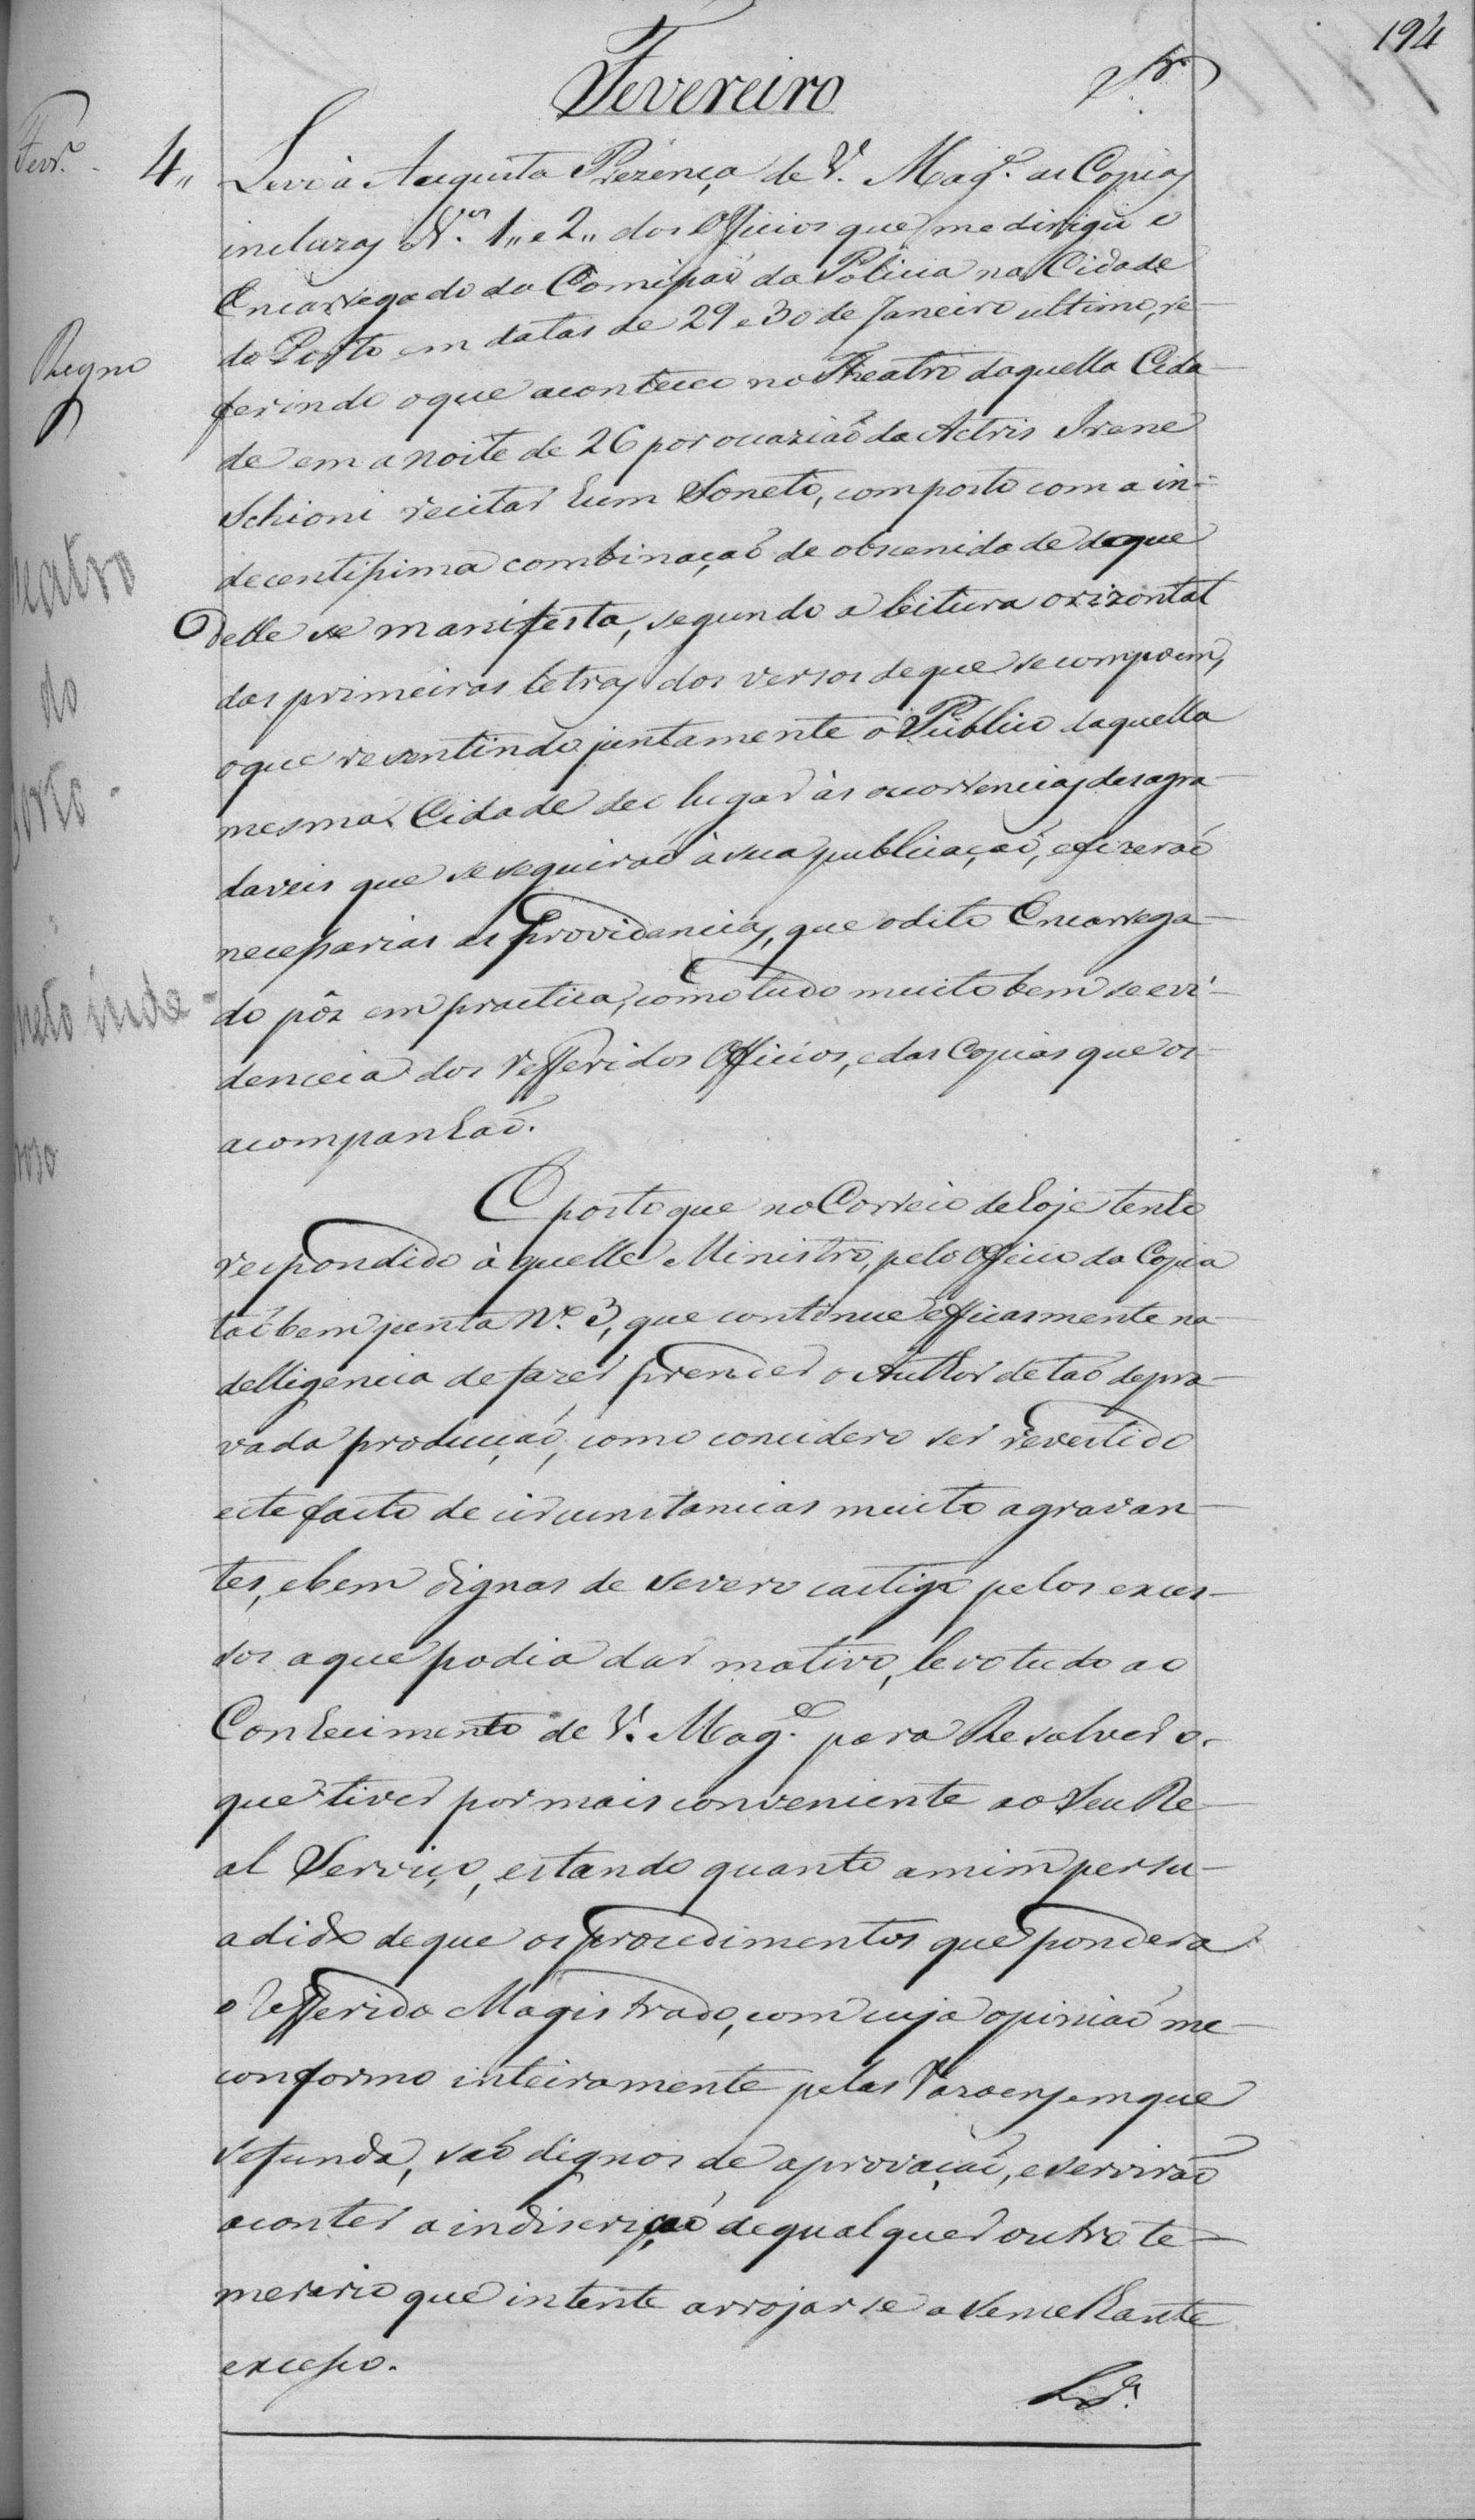 194
Fevereiro
Sr.
Fevr.º
4,,
Levo à Augusta Prezença de V. Mag.e as Copias
incluzas N.os 1,, e 2,, dos Officios que me dirigiu o
Encarregado da Comissaõ da Policia na Cidade
do Porto em datas de 29 e 30 de Janeiro ultimo, re-
Regno
ferindo o que aconteceo no Theatro daquella Cida-
de em a noite de 26 por ocaziaõ da Actris Irene
Schioni recitar hum Soneto, composto com a in-
decentissima combinaçaõ de obscenidade de que
Delle se manifesta, segundo a leitura orizontal
das primeiras letras dos versos de que se compoem,
o que resentindo juntamente o Publico daquella
mesma Cidade deo lugar às ocorrencias desagra-
daveis que se seguiraõ à sua publicaçaõ, e fizeraõ
necessarias as Providencias, que o dito Encarrega-
do pôz em practica, como tudo muito bem se evi-
denceia dos Refferidos Officios, e das Copias que os
acompanhaõ.
eatro
do
orto -
neto inde-
roso
E posto que no Correio de hoje tenho
respondido àquelle Ministro, pelo Officio da Copia
taõbem junta N.º 3, que continue efficasmente na
delligencia de fazer prender o Author de taõ depra-
vada producçaõ, como concidero ser revestido
este facto de circunstancias muito agravan-
tes, e bem dignas de severo castigo pelos exces-
sos a que podia dar motivo, levo tudo ao
Conhecimento de V. Mag.e para Resolver o
que tiver por mais conveniente ao Seu Re-
al Serviço, estando quanto a mim persu-
adido de que os procedimentos que pondera
o Refferido Magistrado, com cuja opiniaõ me
conformo inteiramente pelas Razoens em que
se funda, saõ dignos de aprovaçaõ, e serviraõ
a conter a indiscriçaõ de qualquer outro te-
merario que intente arrojar se a semelhante
excesso.